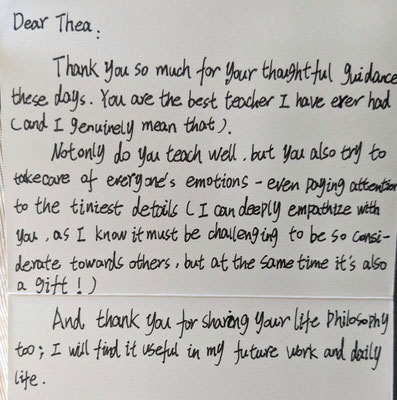 Dear Thea:
Thank you so much for your thoughtful guidance
these days. You are the best teacher I have ever had
(and I genuinely mean that).
Not only do you teach well, but you also try to
take care of everyone's emotions - even paying attention
to the tiniest details (I can deeply empathize with
you, as I know it must be challenging to be so consi-
derate towards others, but at the same time it's also
a gift!)
And thank you for sharing your life philosophy
too; I will find it useful in my future work and daily
life.